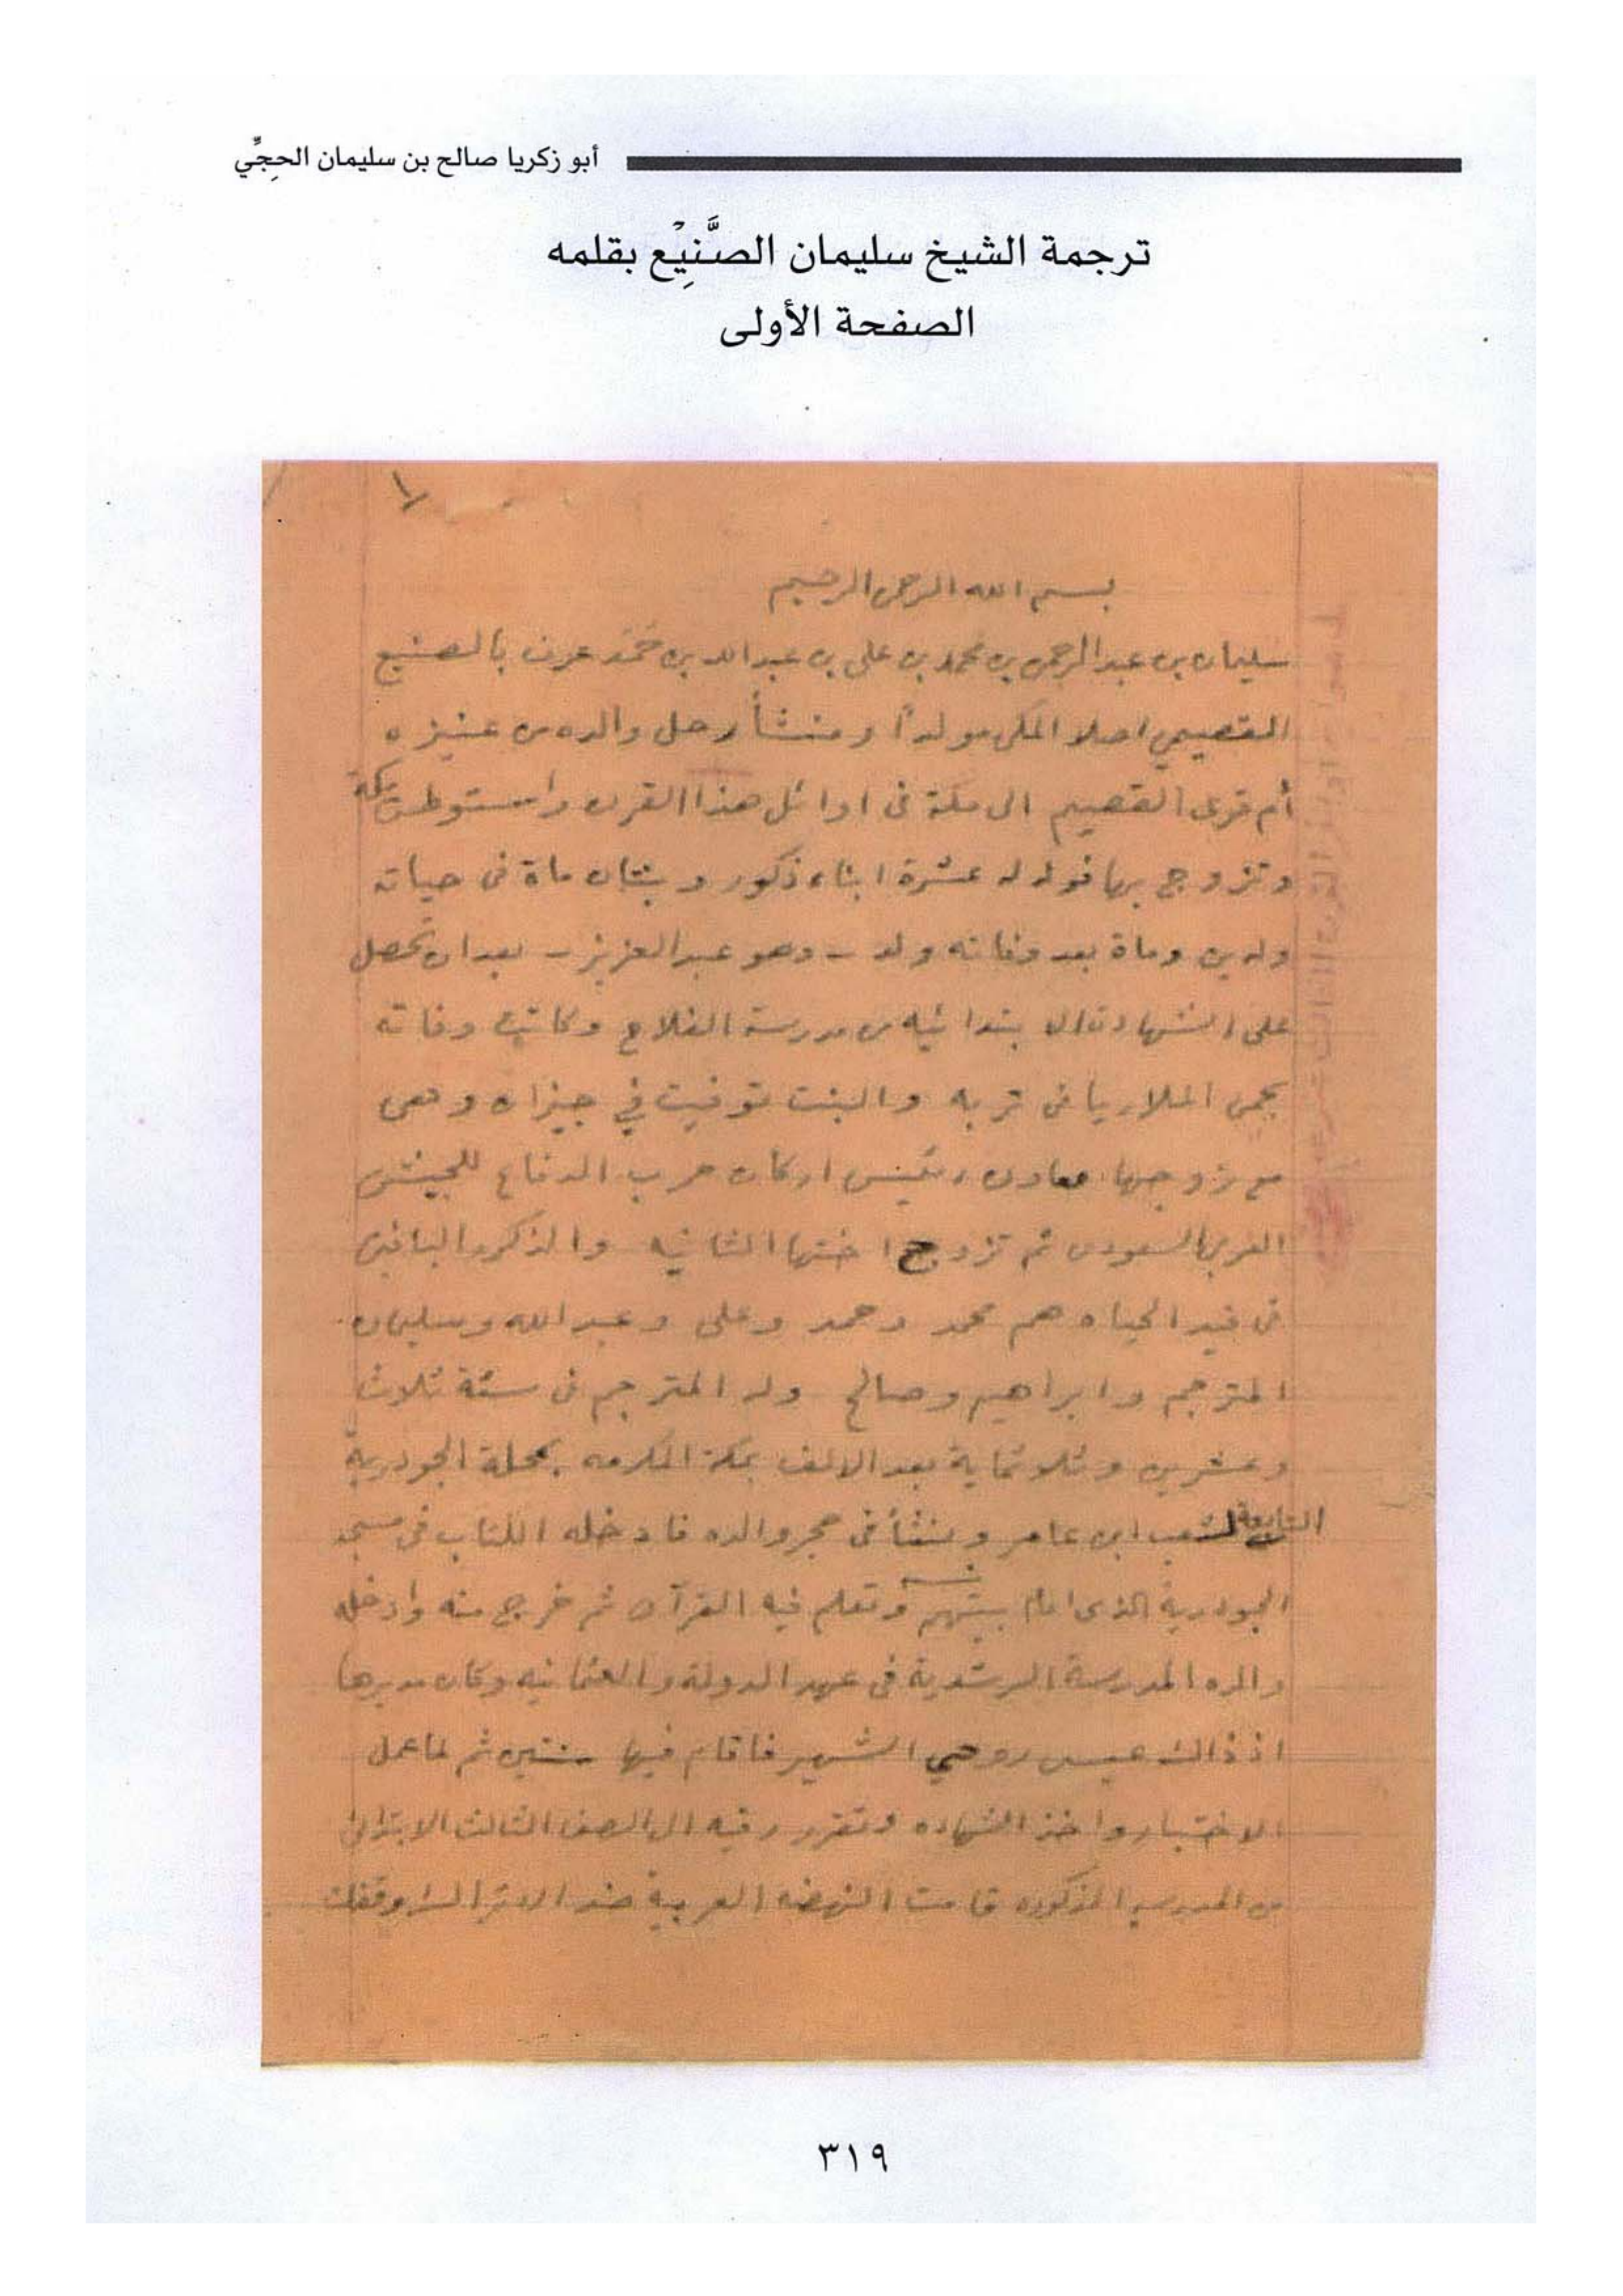 أبو زكريا صالح بن سليمان الحِجِّي
ترجمة الشيخ سليمان الصَّنِيْع بقلمه
الصفحة الأولى
١
بسم الله الرحمن الرحيم
سليمان بن عبدالرحمن بن محمد بن علي بن عبدالله بن حَمَد عرف بالصنيع
القصيمي اصلا المكي مولداً ومنشأ رحل والده من عنيزه
أم قرى القصيم الى مكة فى اوائل هذا القرن واستوطن مكة
وتزوج بها فولد له عشرة ابناء ذكور وبنتان ماة فى حياته
ولدين وماة بعد وفاته ولد - وهو عبدالعزيز - بعد ان تحصل
على الشهادة الابتدائيه من مدرسة الفلاح وكانت وفاته
بحمى الملاريا فى تربه والبنت توفيت في جيزان وهى
مع زوجها معاون رئيس اركان حرب الدفاع للجيش
العربي السعودى ثم تزوج اختها الثانيه والذكور الباقين
فى قيد الحياه هم محمد وحمد وعلى وعبدالله وسليمان
المترجم وابراهيم وصالح ولد المترجم فى سنة ثلاث
وعشرين وثلاثماية بعد الالف بمكة المكرمه بمحلة الجودرية
التابعة لشعب ابن عامر ونشأ فى حجر والده فادخله الكتاب فى مسجد
الجودرية الذى امام بيتهم وتعلم فيه القرآن ثم خرج منه وادخله
والده المدرسة الرشدية فى عهد الدولة والعثمانيه وكان مديرها
اذ ذاك عيسى روحي الشهير فاقام فيها سنتين ثم لما عمل
الاختبار واخذ الشهاده وتقرر رقيه الى الصف الثالث الابتدائى
من المدرسه المذكوره قامت النهضه العربية ضد الاتراك وقفلت
٣١٩